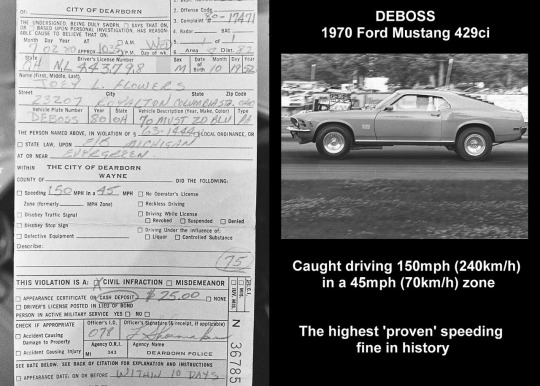 CITY OF DEARBORN
THE UNDERSIGNED, BEING DULY SWORN,
SAYS THAT ON,
BASED UPON PERSONAL INVESTIGATION, HAS REASON-
ABLE CAUSE TO BELIEVE THAT ON:
Month Day Year At
AM
PM
Day of wk.
7 02 80
WED
2. Offense Code
3. Complaint
80-17471
4. Radar
BAC
5.
6. Area
Dist.
State
Driver's License Number
Sex
Date of Birth
Month
Day
Year
M
10
1952
Name (First, Middle, Last)
L. FLOWERS
Street
City
State
Zip Code
ROYALTON COLUMBIA
Vehicle Plate Number
Year
State
Vehicle Description (Year, Make, Color)
Veh. Type
DEBOSS 80 OH 70 MUST 2D BLU PA
THE PERSON NAMED ABOVE, IN VIOLATION OF
LOCAL ORDINANCE, OR
STATE LAW, UPON
MICHIGAN
AT OR NEAR
EVERGREEN
WITHIN THE CITY OF DEARBORN
COUNTY OF WAYNE DID THE FOLLOWING:
Speeding 150 MPH in a 45 MPH
No Operator's License
Zone (formerly MPH Zone)
Reckless Driving
Disobey Traffic Signal
Driving While License
Revoked Suspended Denied
Disobey Stop Sign
Defective Equipment
Driving Under the Influence of:
Liquor Controlled Substance
Describe:
75
THIS VIOLATION IS A: CIVIL INFRACTION MISDEMEANOR
APPEARANCE CERTIFICATE OR CASH DEPOSIT $25.00 NONE
DRIVER'S LICENSE POSTED IN LIEU OF BOND
PERSON IN ACTIVE MILITARY SERVICE YES NO
CHECK IF APPROPRIATE
Officer's I.D.
Officer's Signature (& receipt, if applicable)
Accident Causing
Damage to Property
078
Agency O.R.I.
Agency Name
Accident Causing Injury
MI
DEARBORN POLICE
SEE DATE BELOW. SEE BACK OF CITATION FOR EXPLANATION AND INSTRUCTIONS
APPEARANCE DATE: ON OR BEFORE WITHIN 10 DAYS
N 36785
DEBOSS
1970 Ford Mustang 429ci
Caught driving 150mph (240km/h)
in a 45mph (70km/h) zone
The highest 'proven' speeding
fine in history